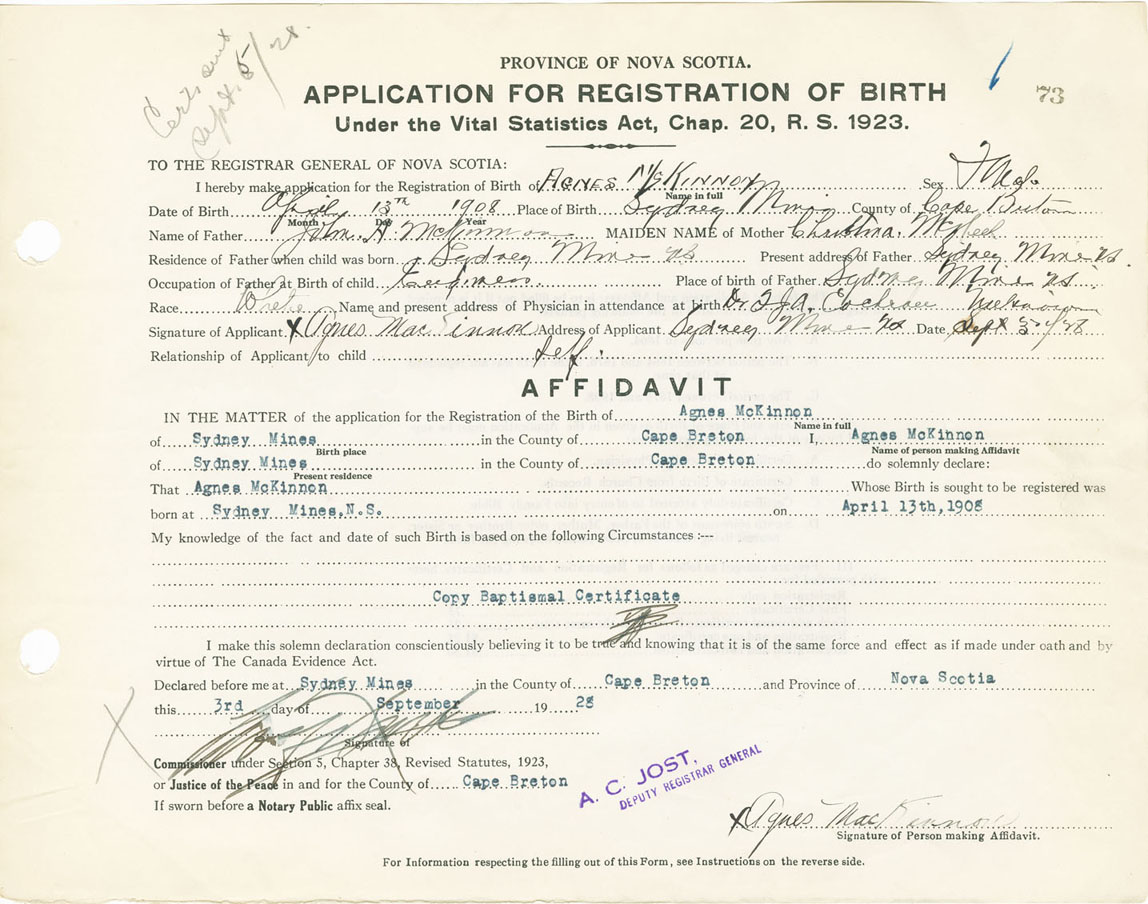 Cert sent
Sept. 5/28.
PROVINCE OF NOVA SCOTIA.
73
APPLICATION FOR REGISTRATION OF BIRTH
Under the Vital Statistics Act, Chap. 20, R. S. 1923.
TO THE REGISTRAR GENERAL OF NOVA SCOTIA:
I hereby make application for the Registration of Birth of AGNES McKINNON Sex
Name in full
Date of Birth April 13th 1908 Place of Birth Sydney Mines County of Cape Breton
Month Day Year
Name of Father John A McKinnon MAIDEN NAME of Mother Christina
Residence of Father when child was born Sydney Mines NS Present address of Father Sydney Mines NS.
Occupation of Father at Birth of child Place of birth of Father Sydney Mines NS.
Race White Name and present address of Physician in attendance at birth Dr Cochran Unknown
Signature of Applicant X Agnes MacKinnon Address of Applicant Sydney Mines NS Date Sept 3rd/28
Relationship of Applicant to child Self.
AFFIDAVIT
IN THE MATTER of the application for the Registration of the Birth of Agnes McKinnon
Name in full
of Sydney Mines in the County of Cape Breton I, Agnes McKinnon
Birth place Name of person making Affidavit
of Sydney Mines in the County of Cape Breton do solemnly declare:
Present residence
That Agnes McKinnon Whose Birth is sought to be registered was
born at Sydney Mines,N.S. on April 13th,1908
My knowledge of the fact and date of such Birth is based on the following Circumstances :---
Copy Baptismal Certificate
I make this solemn declaration conscientiously believing it to be true and knowing that it is of the same force and effect as if made under oath and by
virtue of The Canada Evidence Act.
Declared before me at Sydney Mines in the County of Cape Breton and Province of Nova Scotia
this 3rd day of September 19 28
Signature of
Commissioner under Section 5, Chapter 38, Revised Statutes, 1923,
or Justice of the Peace in and for the County of Cape Breton
If sworn before a Notary Public affix seal.
A. C. JOST,
DEPUTY REGISTRAR GENERAL
X Agnes MacKinnon
Signature of Person making Affidavit.
For Information respecting the filling out of this Form, see Instructions on the reverse side.